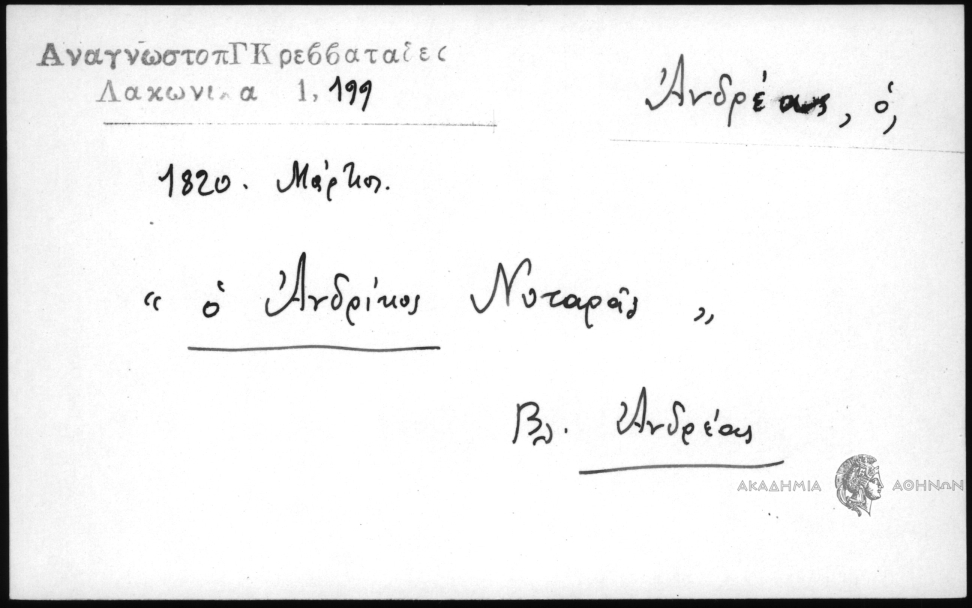 ΑναγνωστοπΓΚρεββαταδες
Λακωνικα 1, 199
Ἀνδρέας, ὁ,
1820. Μάρτιος.
“ ὁ Ἀνδρίκος Νοταρᾶς „
Βλ. Ἀνδρέας
ΑΚΑΔΗΜΙΑ ΑΘΗΝΩΝ